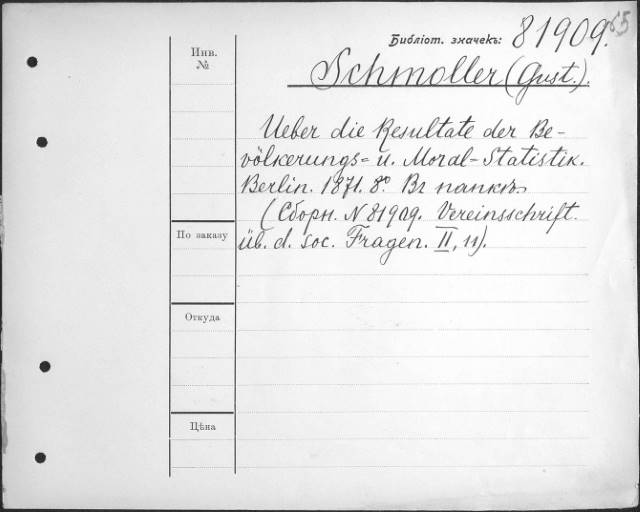 65
Библіот. значекъ: 81909.
Инв.
№
Schmoller (Gust.).
Ueber die Resultate der Be-
völkerungs= u. Moral-Statistik.
Berlin. 1871. 8º. Вг папкѣ
(Сборн. N 81909. Vereinsschrift.
По заказу
üb. d. soc. Fragen. II, 11).
Откуда
Цѣна